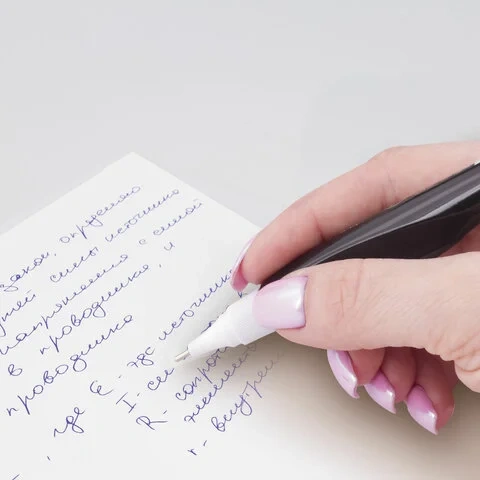 закон, определяю
щей силы источника
напряжения с силой
в проводнике, и
проводника
, где Е - эдс источника
I - си
R - сопро
r - внутрен